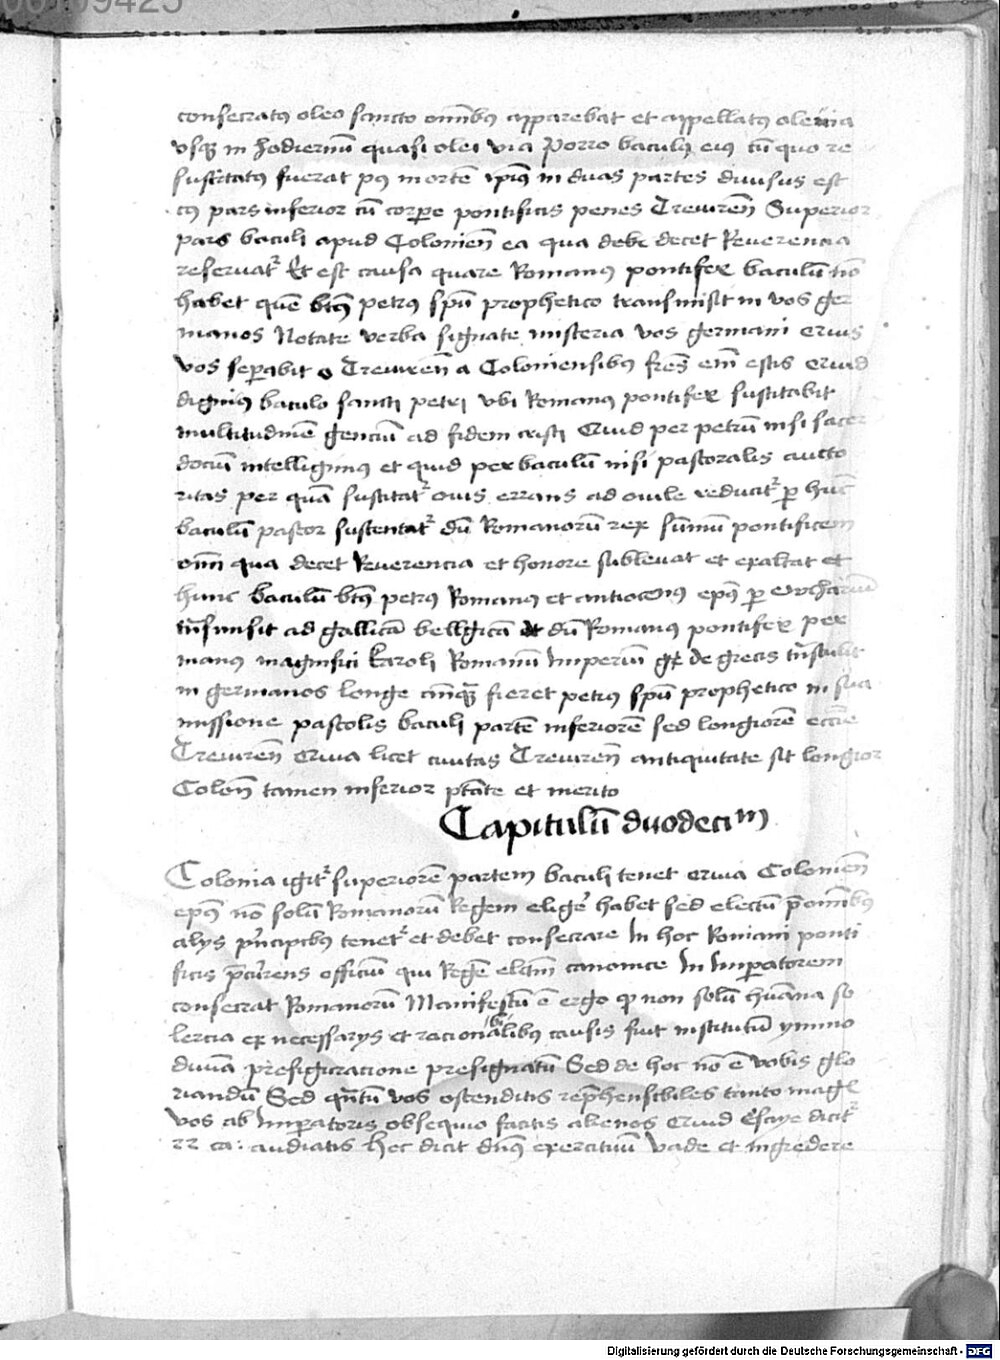 00109425
consecratꝰ oleo sancto omībꝫ apparebat et appellatꝰ olei via
vsqꝫ in hodiernū quasi olei via Porro baculꝰ eiꝰ cū quo re
suscitatꝰ fuerat pꝰ mortē ipiꝰ in duas partes diuisus est
cꝰ pars inferior cū corpe pontificis penes Treuireñ Superior
pars baculi apud Colonieñ ea qua debe decet Reuerencia
reseruatᷣ Et est causa quare Romanꝰ pontifex baculū nō
habet quē btꝰ petrꝰ spū prophetico transmisit in vos ger
manos Notate verba signate misteria vos germani Cuius
vos seꝑabit o Treuireñ a Coloniensibꝰ fres em̄ estis Quid
digniꝰ baculo sancti petri vbi Romanꝰ pontifex suscitabit
multitudinē genciū ad fidem cristi Quid per petrū nisi sacer
dociū intelligimꝰ et quid per baculū nisi pastoralis aucto
ritas per quā suscitatᷣ ouis errans ad ouile reducitᷣ ꝑ hūc
baculū pastor sustentatᷣ dū Romanorū rex sūmū pontificem
om̄i qua decet Reuerencia et honore subleuat et exaltat et
hunc baculū btꝰ petrꝰ Romanꝰ et antiocenꝰ epꝰ ꝑ Eucharium
tn̄smisit ad gallicā bellgicā dū Romanꝰ pontifex per
manꝰ magnifici karoli Romanū Imperiū de grecis tn̄stulit
in germanos longe anteqꝫ fieret petrꝰ spū prophetico in sua
missione pastolis baculi partē inferiorē sed longiorē ecclīe
Treuireñ Quia licet ciuitas Treuireñ antiquitate sit longior
Coloñ tamen inferior ptāte et merito
Capitulū duodecīm
Colonia igitᷣ superiorē partem baculi tenet Quia Colonieñ
epꝰ nō solū Romanorū Regem eligẽ habet sed electū p̄ omībꝫ
alys pn̄cipibꝫ tenetᷣ et debet consecrare In hoc Romani ponti
ficis p̄currens officiū qui Regē elc̄m canonice In Imꝑatorem
consecrat Romanorū Manifestū ē ergo ꝙ non solū hūana so
lercia ex necessarys et racionabilibꝫ causis fuit institutū ymmo
diuīa prefiguracione presignatū Sed de hoc nō ē vobis glo
riandū Sed qn̄tū vos ostenditis rep̄hensibiles tanto magꝭ
vos ab Imꝑatoris obsequio facitis alienos Quid Esaye dicitᷣ
22 ca: audiatis Hec dicit dn̄s exercituū Vade et ingredere
Digitalisierung gefördert durch die Deutsche Forschungsgemeinschaft - DFG